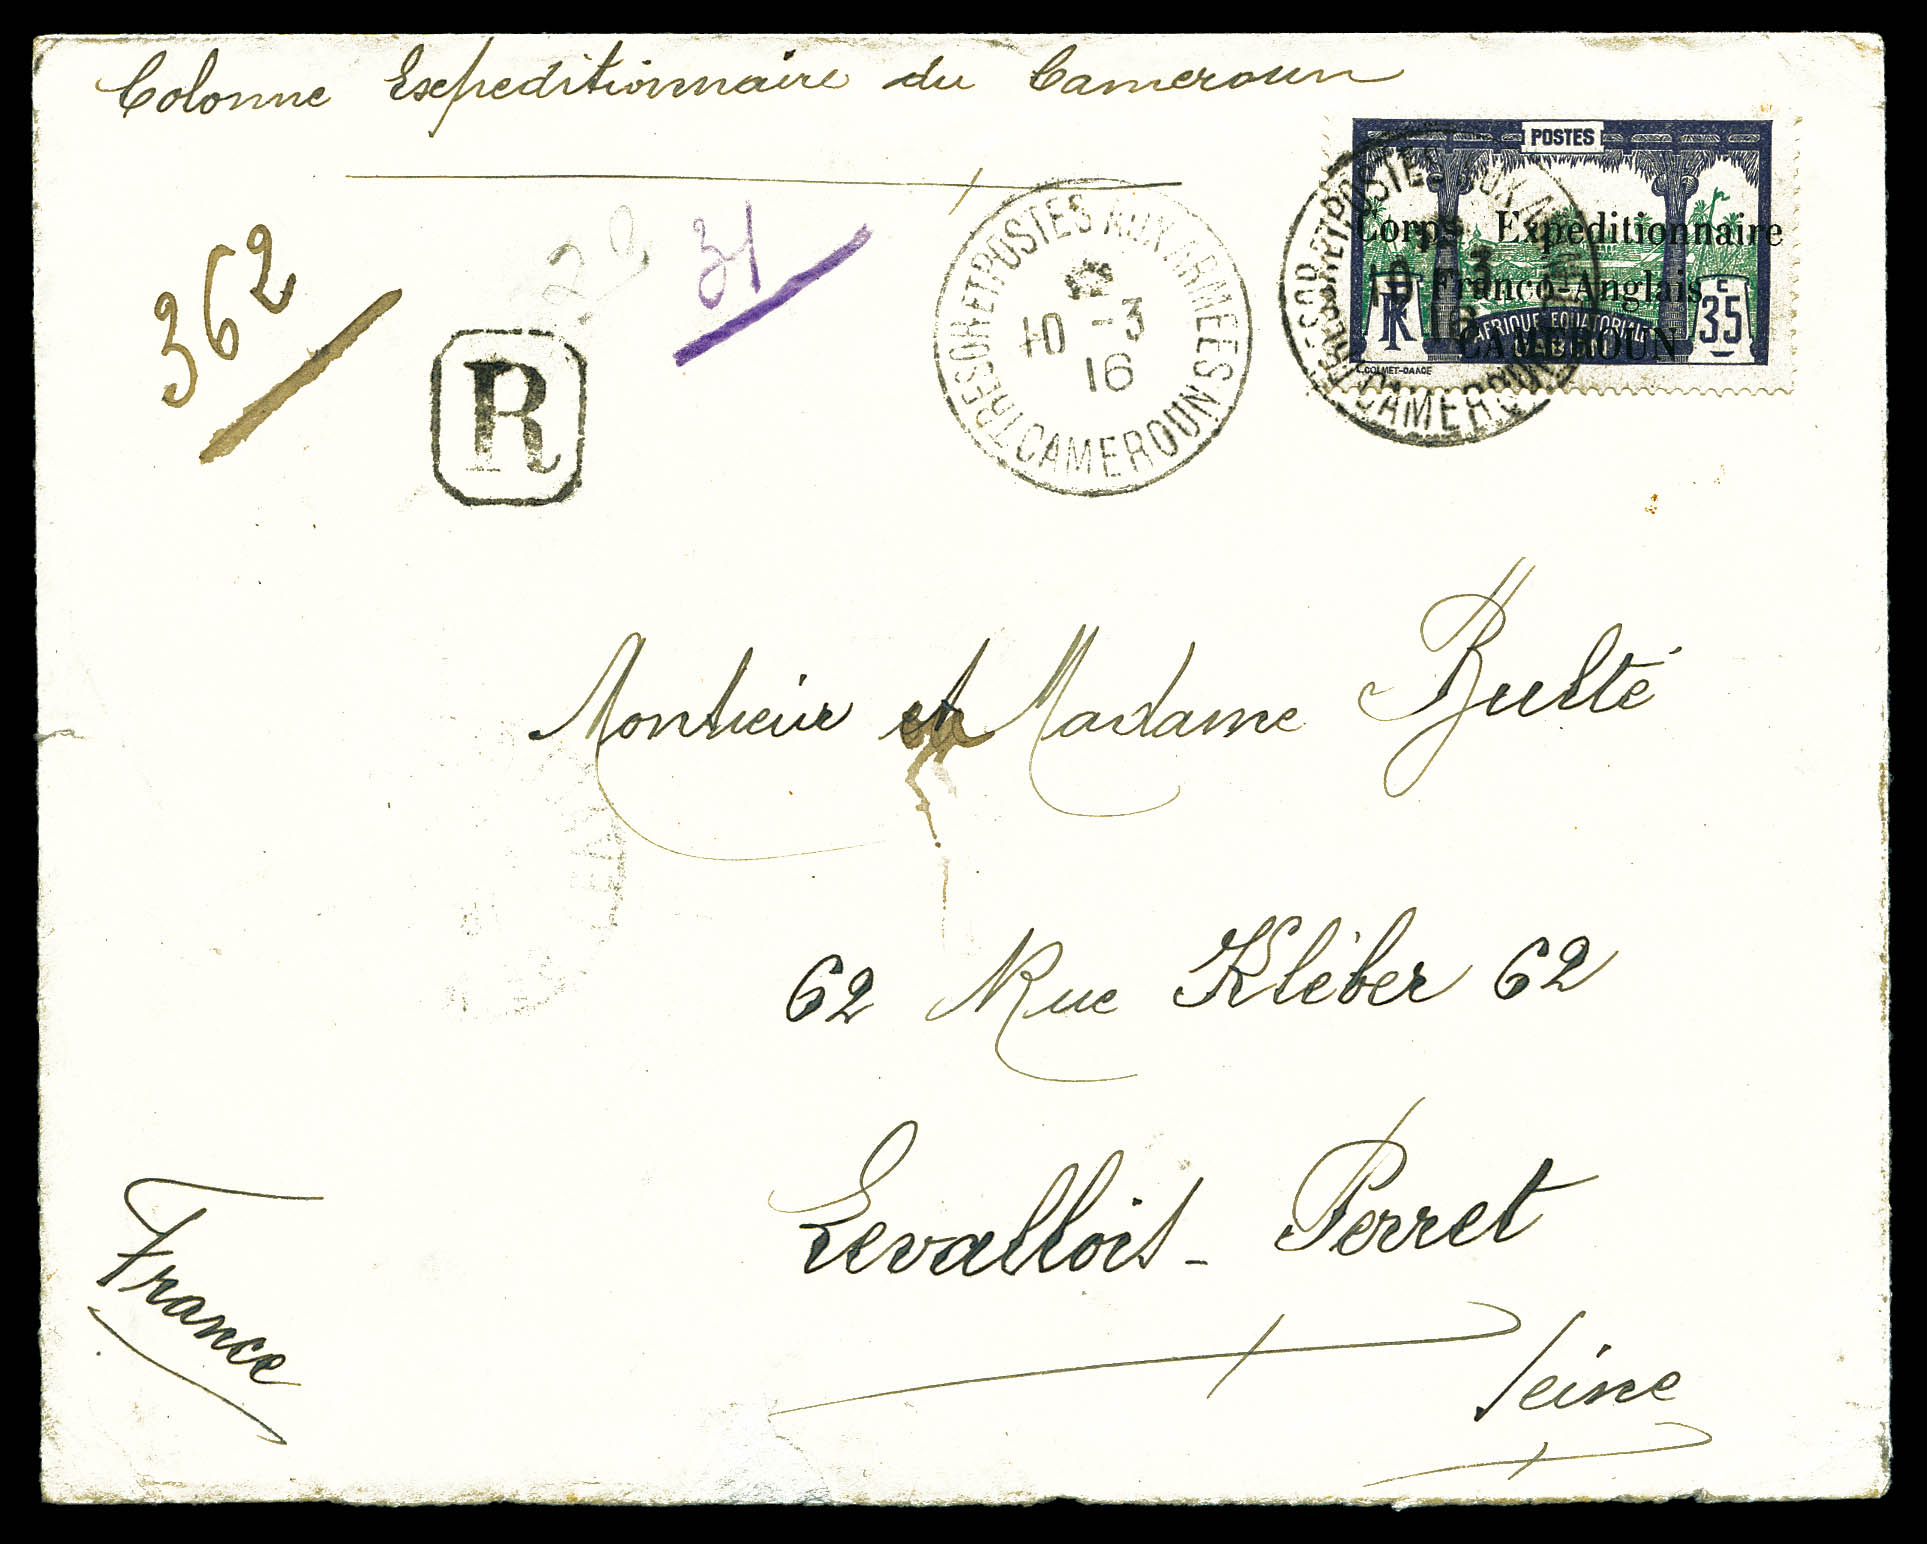 Colonne Expeditionnaire du Cameroun
POSTES
Corps Expeditionnaire
Franco-Anglais
CAMEROUN
RF
AFRIQUE EQUATORIALE
GABON
35 c
L. COLMET-DAAGE
TRESOR ET POSTES AUX ARMEES
10 3
16
CAMEROUN
TRESOR ET POSTES AUX ARMEES
10 -3
16
CAMEROUN
362
31
R
Monsieur et Madame Bulté
62 Rue Kléber 62
Levallois-Perret
Seine
France